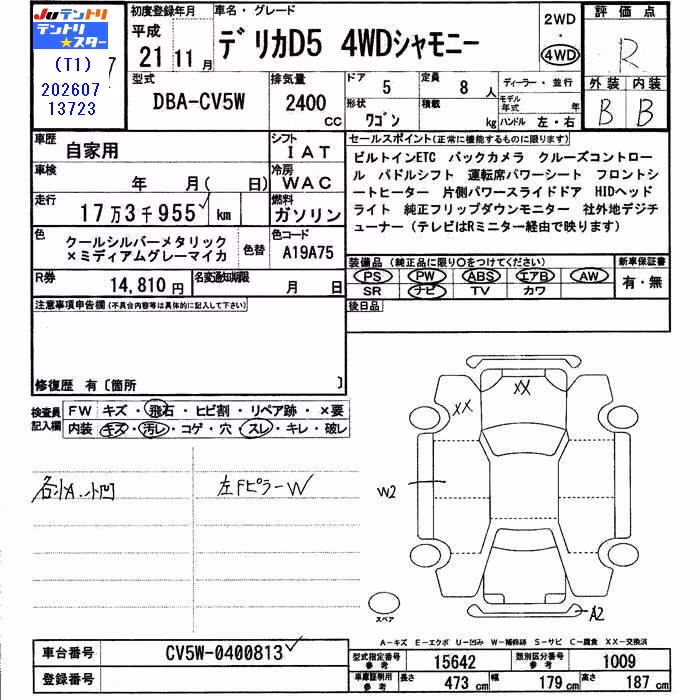 Juテントリ
テントリ★スター
(T1)
202607
13723
初度登録年月
平成
21年11月
車名・グレード
デリカD5 4WDシャモニー
2WD
・
4WD
評価点
R
型式
DBA-CV5W
排気量
2400
cc
ドア
5
形状
ワゴン
定員
8人
積載
kg
ディーラー・並行
モデル年式 年
ハンドル 左・右
外装 内装
B B
車歴
自家用
シフト
IAT
車検
年 月( 日)
冷房
WAC
走行
17万3千955km
燃料
ガソリン
色
クールシルバーメタリック
×ミディアムグレーマイカ
色替
色コード
A19A75
R券
14,810円
名変通知期限
月 日
セールスポイント(正常に機能するものに限ります)
ビルトインETC バックカメラ クルーズコントロー
ル パドルシフト 運転席パワーシート フロントシ
ートヒーター 片側パワースライドドア HIDヘッド
ライト 純正フリップダウンモニター 社外地デジチ
ューナー(テレビはRミニター経由で映ります)
装備品(純正品に限り○をつけてください)
PS PW ABS エアB AW
SR ナビ TV カワ
新車保証書
有・無
後日品
注意事項申告欄(不具合内容等は具体的に記入して下さい)
修復歴 有〔箇所 〕
検査員
記入欄
FW キズ・飛石・ヒビ割・リペア跡・×要
内装 キズ・汚レ・コゲ・穴・スレ・キレ・破レ
各小A.小凹
左Fピラー W
XX
XX
W2
A2
スペア
A-キズ E-エクボ U-凹み W-補修跡 S-サビ C-腐食 XX-交換済
車台番号
CV5W-0400813
登録番号
型式指定番号
参考
15642
類別区分番号
参考
1009
車庫証明用
参考
長さ 473cm 幅 179cm 高さ 187cm